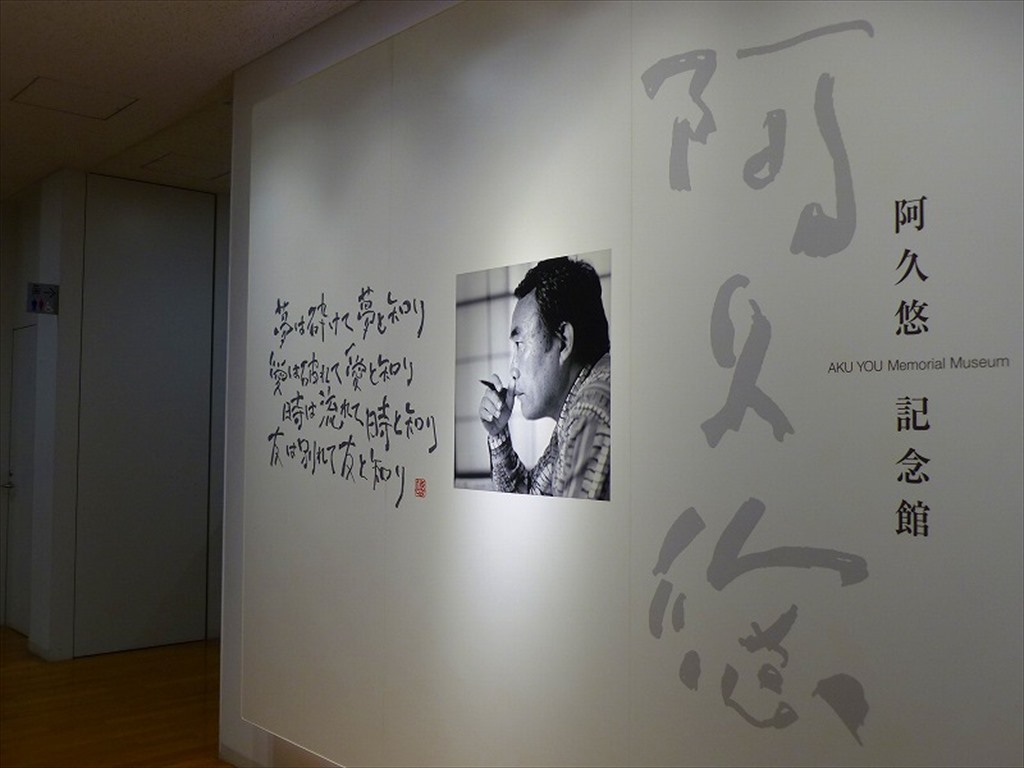 阿久悠
阿久悠記念館
AKU YOU Memorial Museum
夢は砕けて夢と知り
愛は破れて愛と知り
時は流れて時と知り
友は別れて友と知り